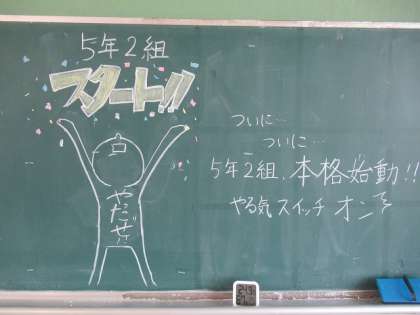 5年2組
スタート!!
やったぜ!
ついに…
ついに…
5年2組、本格始動!!
やる気スイッチ オン